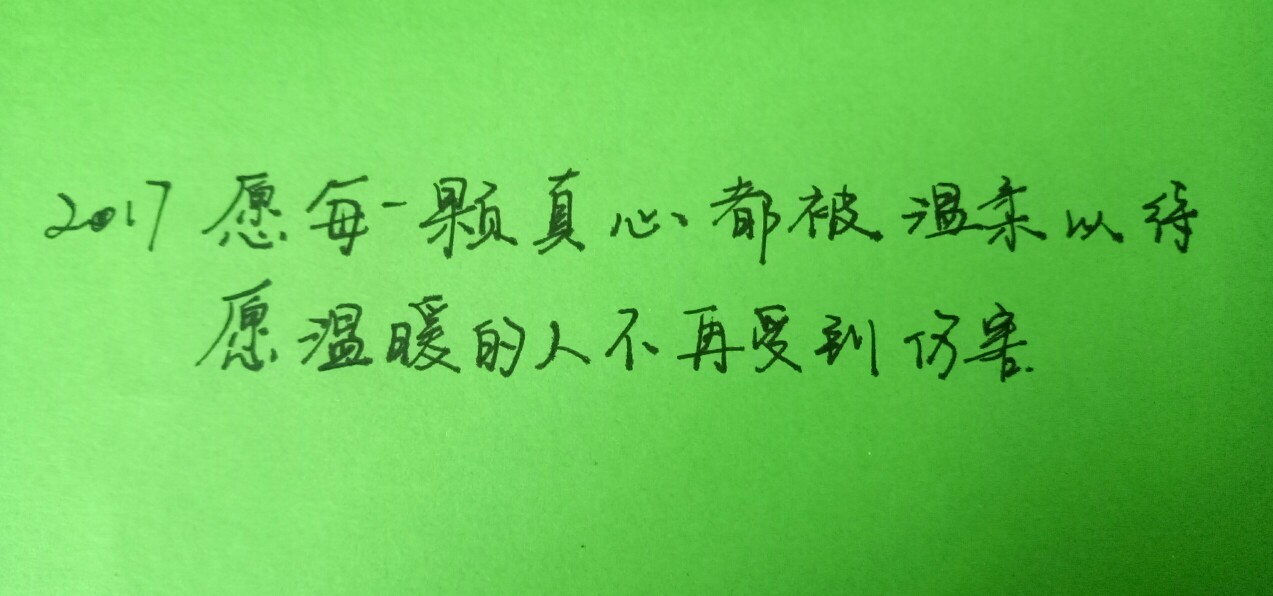 2017 愿每一颗真心都被温柔以待
愿温暖的人不再受到伤害